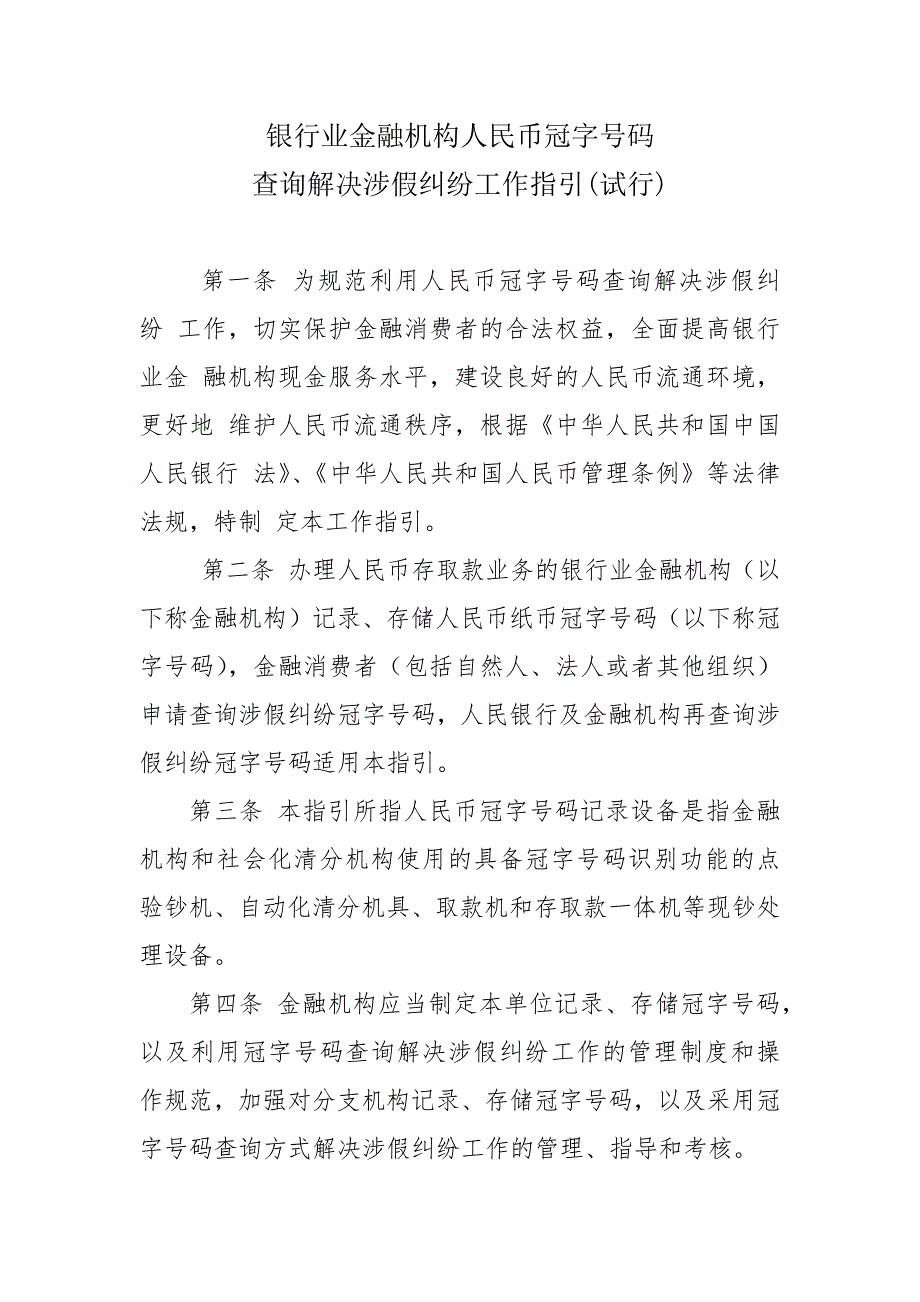 银行业金融机构人民币冠字号码
查询解决涉假纠纷工作指引(试行)
第一条 为规范利用人民币冠字号码查询解决涉假纠
纷 工作，切实保护金融消费者的合法权益，全面提高银行
业金 融机构现金服务水平，建设良好的人民币流通环境，
更好地 维护人民币流通秩序，根据《中华人民共和国中国
人民银行 法》、《中华人民共和国人民币管理条例》等法律
法规，特制 定本工作指引。
第二条 办理人民币存取款业务的银行业金融机构（以
下称金融机构）记录、存储人民币纸币冠字号码（以下称冠
字号码），金融消费者（包括自然人、法人或者其他组织）
申请查询涉假纠纷冠字号码，人民银行及金融机构再查询涉
假纠纷冠字号码适用本指引。
第三条 本指引所指人民币冠字号码记录设备是指金融
机构和社会化清分机构使用的具备冠字号码识别功能的点
验钞机、自动化清分机具、取款机和存取款一体机等现钞处
理设备。
第四条 金融机构应当制定本单位记录、存储冠字号码，
以及利用冠字号码查询解决涉假纠纷工作的管理制度和操
作规范，加强对分支机构记录、存储冠字号码，以及采用冠
字号码查询方式解决涉假纠纷工作的管理、指导和考核。